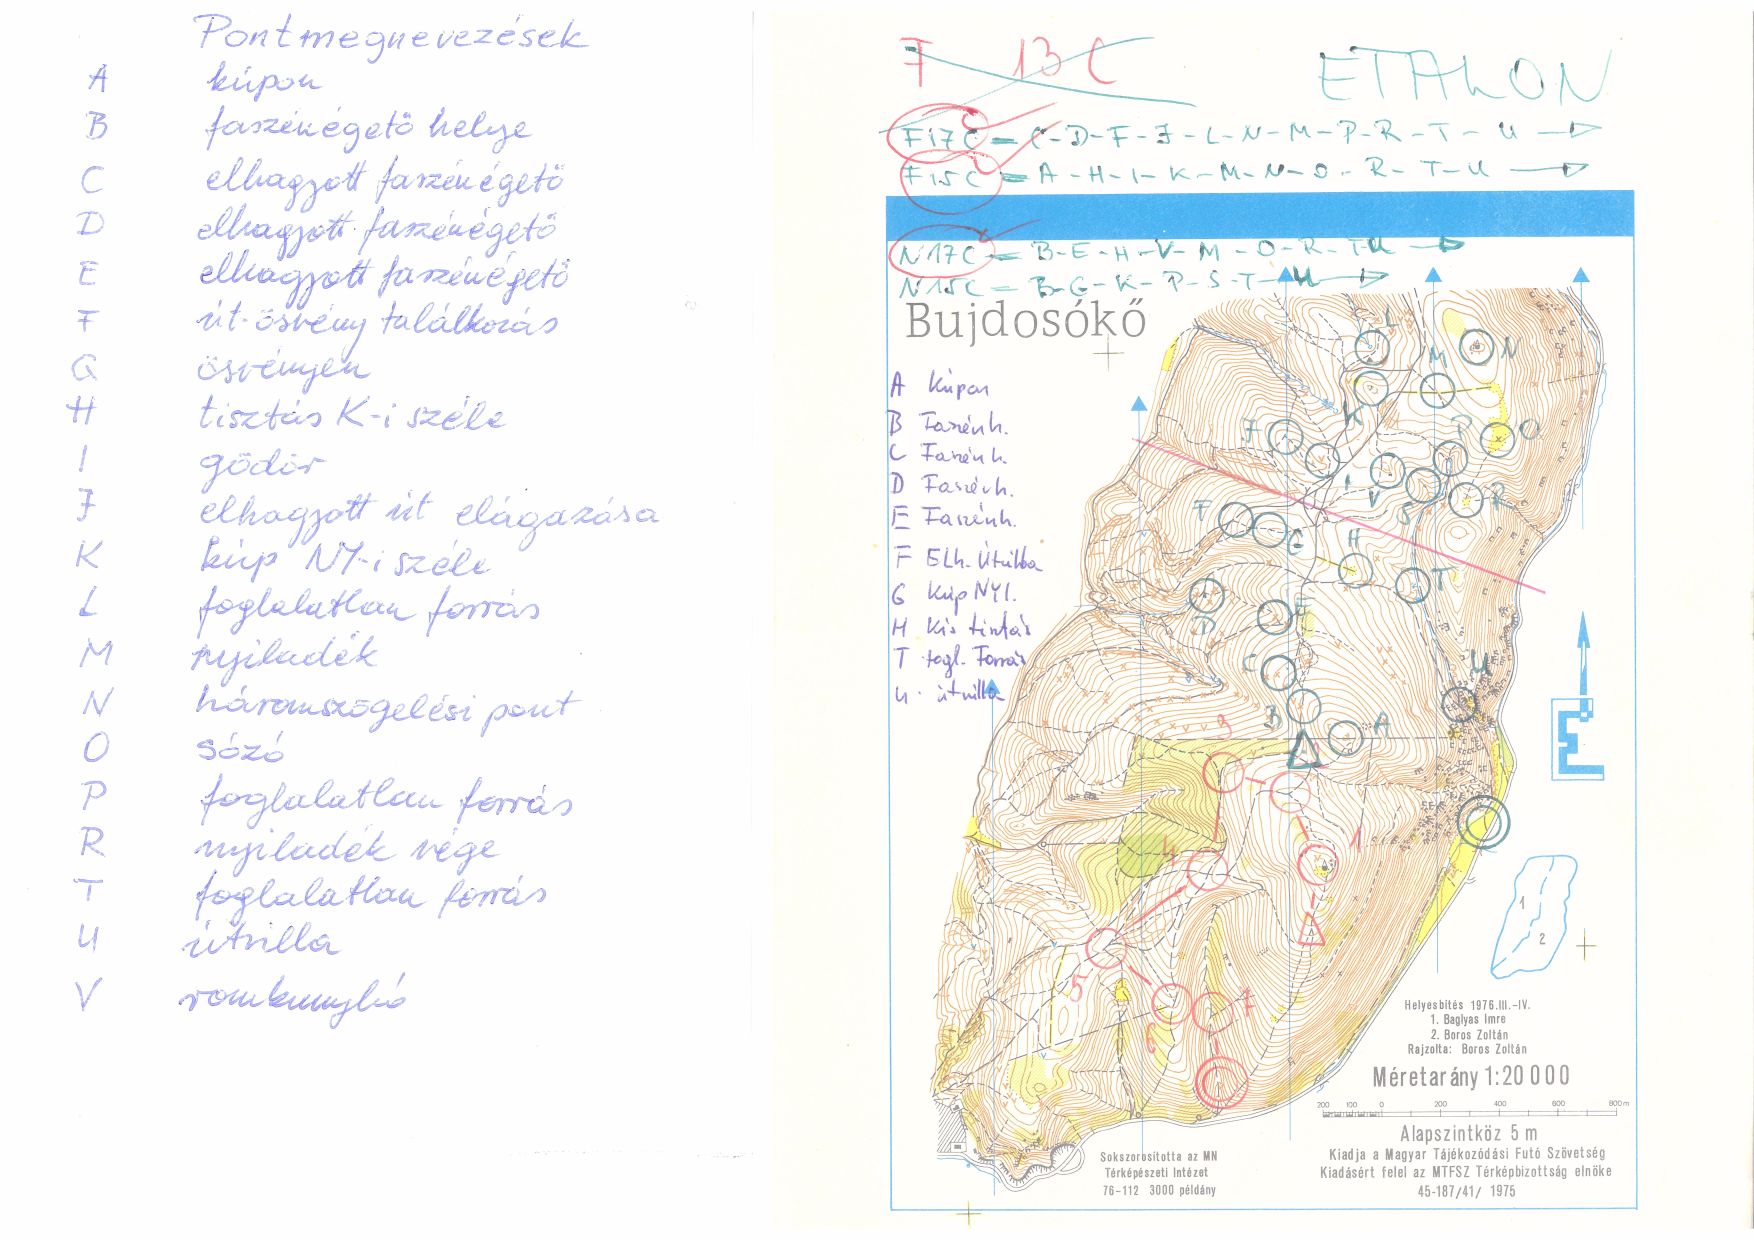 Pontmegnevezések
A kúpon
B faszénégető helye
C elhagyott faszénégető
D elhagyott faszénégető
E elhagyott faszénégető
F út-ösvény találkozás
G ösvényen
H tisztás K-i széle
I gödör
J elhagyott út elágazása
K kúp NY-i széle
L foglalatlan forrás
M nyiladék
N háromszögelési pont
O sózó
P foglalatlan forrás
R nyiladék vége
T foglalatlan forrás
U útvilla
V romkunyhó
F 13C
ETALON
F17C = C-D-F-J-L-N-M-P-R-T-U
F15C = A-H-I-K-M-N-O-R-T-U
N17C = B-E-H-V-M-O-R-TU
N15C = B-G-K-P-S-T-U
Bujdosókő
A Kúpon
B Faszénh.
C Faszénh.
D Faszénh.
E Faszénh.
F Elh. Útvilla
G Kúp NYl.
H Kis tisztás
T fogl. Forrás
U útvilla
L
M
N
K
J
P
O
I
V
S
R
F
G
H
T
D
E
C
U
B
A
3
4
1
5
6
7
1
2
Helyesbítés 1976.III.-IV.
1. Baglyas Imre
2. Boros Zoltán
Rajzolta: Boros Zoltán
Méretarány 1:20 000
200 100 0 200 400 600 800 m
Alapszintköz 5 m
Kiadja a Magyar Tájékozódási Futó Szövetség
Kiadásért felel az MTFSZ Térképbizottság elnöke
45-187/41/ 1975
Sokszorosította az MN
Térképészeti Intézet
76-112 3000 példány